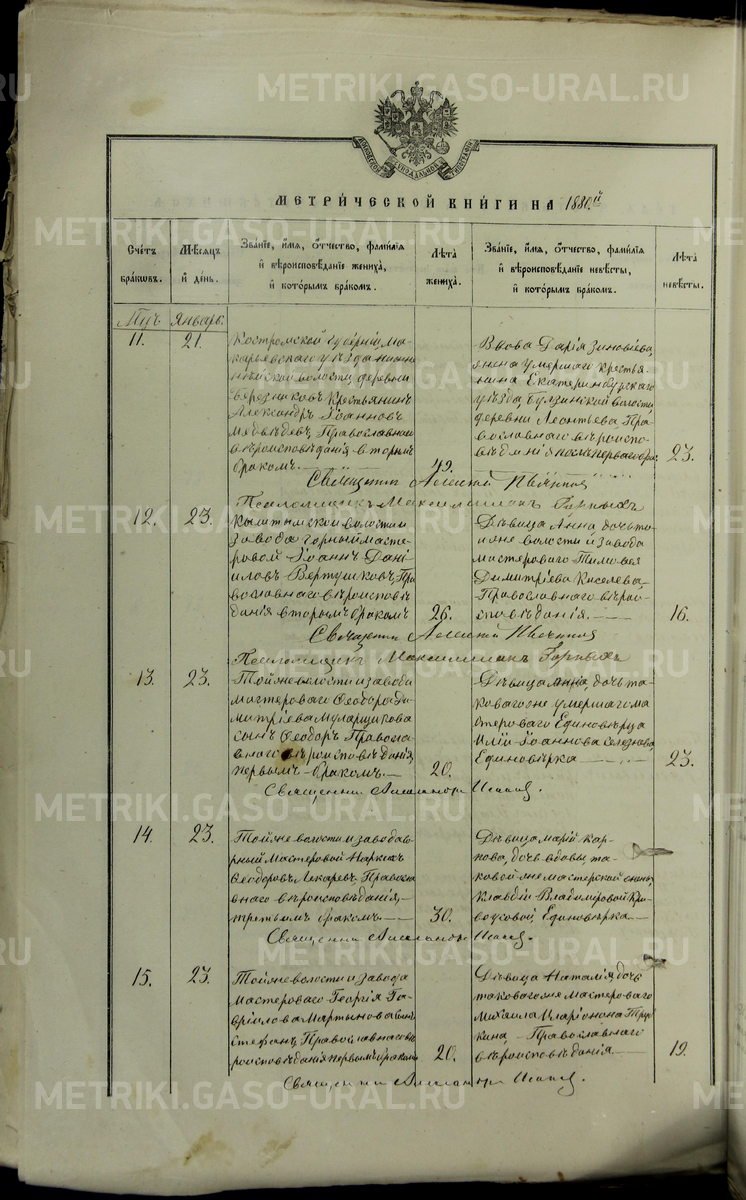 METRIKI.GASO-URAL.RU
МЕТРИ́ЧЕСКОЙ КНИ́ГИ НА 1880.й
Сче́тъ бра́ковъ.
Мѣ́сяцъ и҆ де́нь.
Зва́нїе, и҆́мя, ѻ҆́тчество, фами́лїя и҆ вѣроисповѣ́данїе жениха̀, и҆ кото́рымъ бра́комъ.
Лѣ́та жениха̀.
Зва́нїе, и҆́мя, ѻ҆́тчество, фами́лїя и҆ вѣроисповѣ́данїе невѣ́сты, и҆ кото́рымъ бра́комъ.
Лѣ́та невѣ́сты.
Январь.
11.
21.
Костромской Губерніи Ма-
карьевскаго уѣзда
волости, деревни
Березниковъ Крестьянинъ
Александръ Іоанновъ
Медвѣдевъ, Православнаго
вѣроисповѣданія вторымъ
бракомъ.
49.
Вдова Дарія Зиновіева,
жена умершаго кресть-
янина Екатеринбургскаго
уѣзда, Булзинской волости,
деревни Леонтьева, Пра-
вославнаго вѣроиспо-
вѣданія послѣ перваго бра:
23.
Священникъ Алексій
Псаломщикъ Максимиліанъ Горныхъ
12.
23.
Кыштымской волости и
завода горный масте-
ровой Іоаннъ Дані-
иловъ Вертушковъ, Пра-
вославнаго вѣроисповѣ-
данія вторымъ бракомъ
26.
Дѣвица Анна, дочь то-
яже волости и завода
мастероваго Тимоѳея
Димитріева Киселева
Православнаго вѣрои-
сповѣданія.
16.
Священникъ Алексій
Псаломщикъ Максимиліанъ Горныхъ
13.
23.
Тойже волости и завода
мастероваго Ѳеодора Ди-
митріева Муларщикова
сынъ Ѳеодоръ, Правосла-
внаго вѣроисповѣданія,
первымъ бракомъ.
20.
Дѣвица Анна, дочь та-
коваго же умершаго ма-
стероваго Единовѣрца
Иліи Іоаннова Селезнева
Единовѣрка
23.
Священникъ Александръ
14.
23.
Тойже волости и завода
Мастеровой Наркисъ
Ѳеодоровъ Лекаревъ, Правосла-
внаго вѣроисповѣданія,
третьимъ бракомъ.
30.
Дѣвица Марія Кар-
пова, дочь вдовы, та-
ковой же мастерской жены,
Клавдіи Владиміровой
Единовѣрка
Священникъ Александръ
15.
23.
Тойже волости и завода
мастероваго Георгія Га-
вріилова Мартынова сынъ
Стефанъ, Православнаго вѣ-
роисповѣданія первымъ бракомъ
20.
Дѣвица Наталія, дочь
таковаго же мастероваго
Михаила Иларіонова
Православнаго
вѣроисповѣданія
19.
Священникъ Александръ